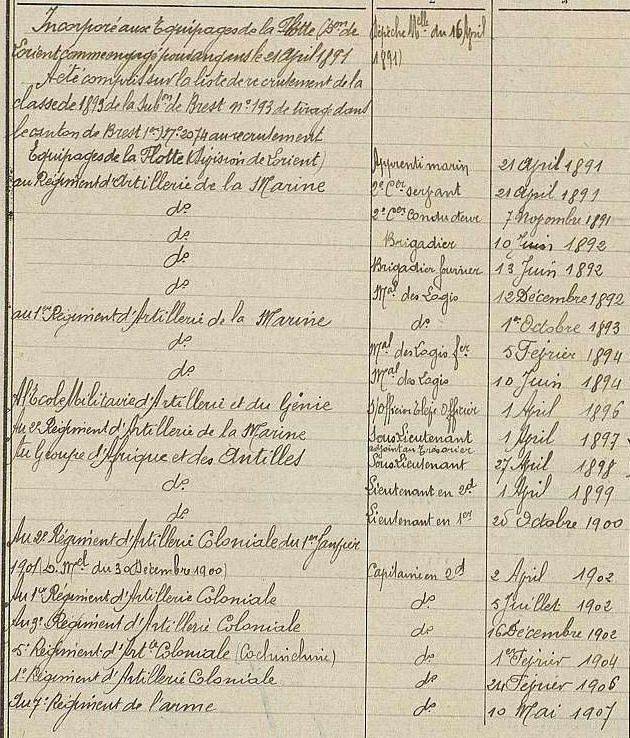 Incorporé aux Equipages de la Flotte (Don de Dépêche Mlle du 16 April
Lorient comme engagé pour cinq ans le 21 April 1891 1891)
A été compris sur la liste de recrutement de la
classe de 1893 de la Subon de Brest no 193 de tirage dans
le canton de Brest 1er) No 2074 au recrutement
Equipages de la Flotte (Division de Lorient) Apprenti marin 21 April 1891
au Régiment d'Artillerie de la Marine 2e Cer servant 21 april 1891
do 2e Cer conducteur 7 Novembre 1891
do Brigadier 10 Juin 1892
do Brigadier fourrier 13 Juin 1892
do Mal des Logis 12 Décembre 1892
au 1er Régiment d'Artillerie de la Marine do 1er Octobre 1893
do Mal des Logis fer 5 Février 1894
do Mal des Logis 10 Juin 1894
A l'Ecole Militaire d'Artillerie et du Génie S/Officier Elève Officier 1 April 1896
Au 2e Régiment d'Artillerie de la Marine Sous Lieutenant 1 April 1897
adjoint au Trésorier
Au Groupe d'Afrique et des Antilles Sous Lieutenant 27 April 1898
do Lieutenant en 2d 1 April 1899
do Lieutenant en 1er 25 Octobre 1900
Au 2e Régiment d'Artillerie Coloniale du 1er Janvier
1901 D. Mel du 30 Décembre 1900) Capitaine en 2d 2 April 1902
Au 1er Régiment d'Artillerie Coloniale do 5 Juillet 1902
Au 3e Régiment d'Artillerie Coloniale do 16 Décembre 1902
5e Régiment d'Arte Coloniale (Cochinchine) do 1er Février 1904
1e Régiment d'Artillerie Coloniale do 24 Février 1906
Au 7e Régiment de l'arme do 10 Mai 1907